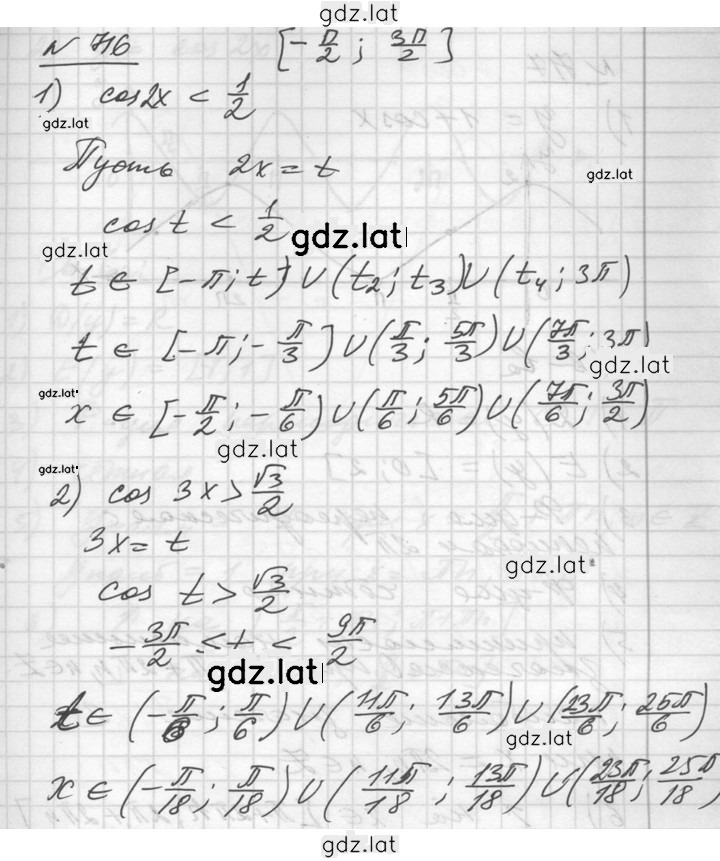 gdz.lat
№ 716 [-π/2 ; 3π/2]
1) cos2x < 1/2
gdz.lat
Пусть 2x = t
gdz.lat
cos t < 1/2
gdz.lat
gdz.lat
t ∈ [-π; t] ∪ (t₂; t₃) ∪ (t₄; 3π)
t ∈ [-π; -π/3] ∪ (π/3; 5π/3) ∪ (7π/3; 3π)
gdz.lat
gdz.lat
x ∈ [-π/2; -π/6) ∪ (π/6; 5π/6) ∪ (7π/6; 3π/2)
gdz.lat
gdz.lat
2) cos 3x > √3/2
3x = t
gdz.lat
cos t > √3/2
-3π/2 ≤ t < 9π/2
gdz.lat
t ∈ (-π/6; π/6) ∪ (11π/6; 13π/6) ∪ (23π/6; 25π/6)
gdz.lat
x ∈ (-π/18; π/18) ∪ (11π/18; 13π/18) ∪ (23π/18; 25π/18)
gdz.lat